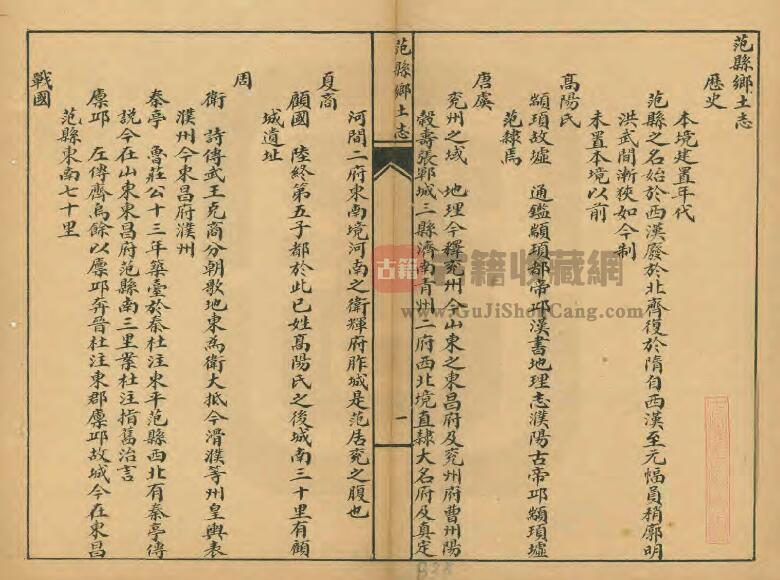 范縣鄉土志
歷史
本境建置年代
范縣之名始於西漢廢於北齊復於隋自西漢至元幅員稍廓明
洪武間漸狹如今制
未置本境以前
髙陽氏
顓頊故墟 通鑑顓頊都帝邱漢書地理志濮陽古帝邱顓頊墟
范隸焉
唐虞
兖州之域 地理今釋兖州今山東之東昌府及兖州府曹州陽
榖壽張鄆城三縣濟南青州二府西北境直隸大名府及真定
范縣鄉土志
一
河間二府東南境河南之衛輝府胙城是范居兖之腹也
夏商
顧國 陸終第五子都於此已姓髙陽氏之後城南三十里有顧
城遺址
周
衛 詩傳武王克商分朝歌地東為衛大抵今滑濮等州皇輿表
濮州今東昌府濮州
秦亭 魯莊公十三年築臺於秦杜注東平范縣西北有秦亭傳
說今在山東東昌府范縣南三里案杜注指舊治言
廪邱 左傳齊烏餘以廪邱奔晉杜注東郡廪邱故城今在東昌
范縣東南七十里
戰國
古籍
古籍收藏網
www.GuJiShouCang.com